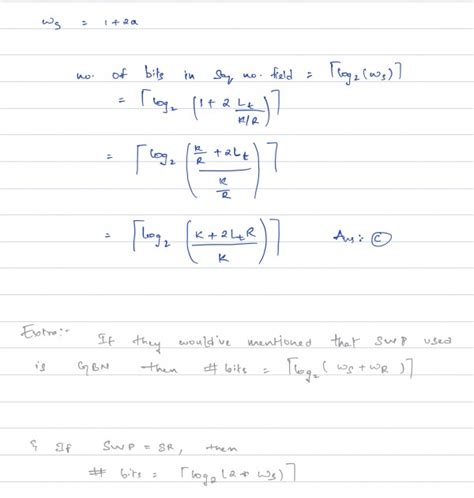 ws = 1 + 2a
no. of bits in Seq no. field = ⌈log2(ws)⌉
= ⌈log2 (1 + 2 Lt / K/R)⌉
= ⌈log2 ((K/R + 2Lt) / (K/R))⌉
= ⌈log2 ((K + 2LtR) / K)⌉ Ans: ⓒ
Extra:- If they would've mentioned that SWP used
is GBN then # bits = ⌈log2(ws + wR)⌉
& If SWP = SR, then
# bits = ⌈log2(2 * ws)⌉